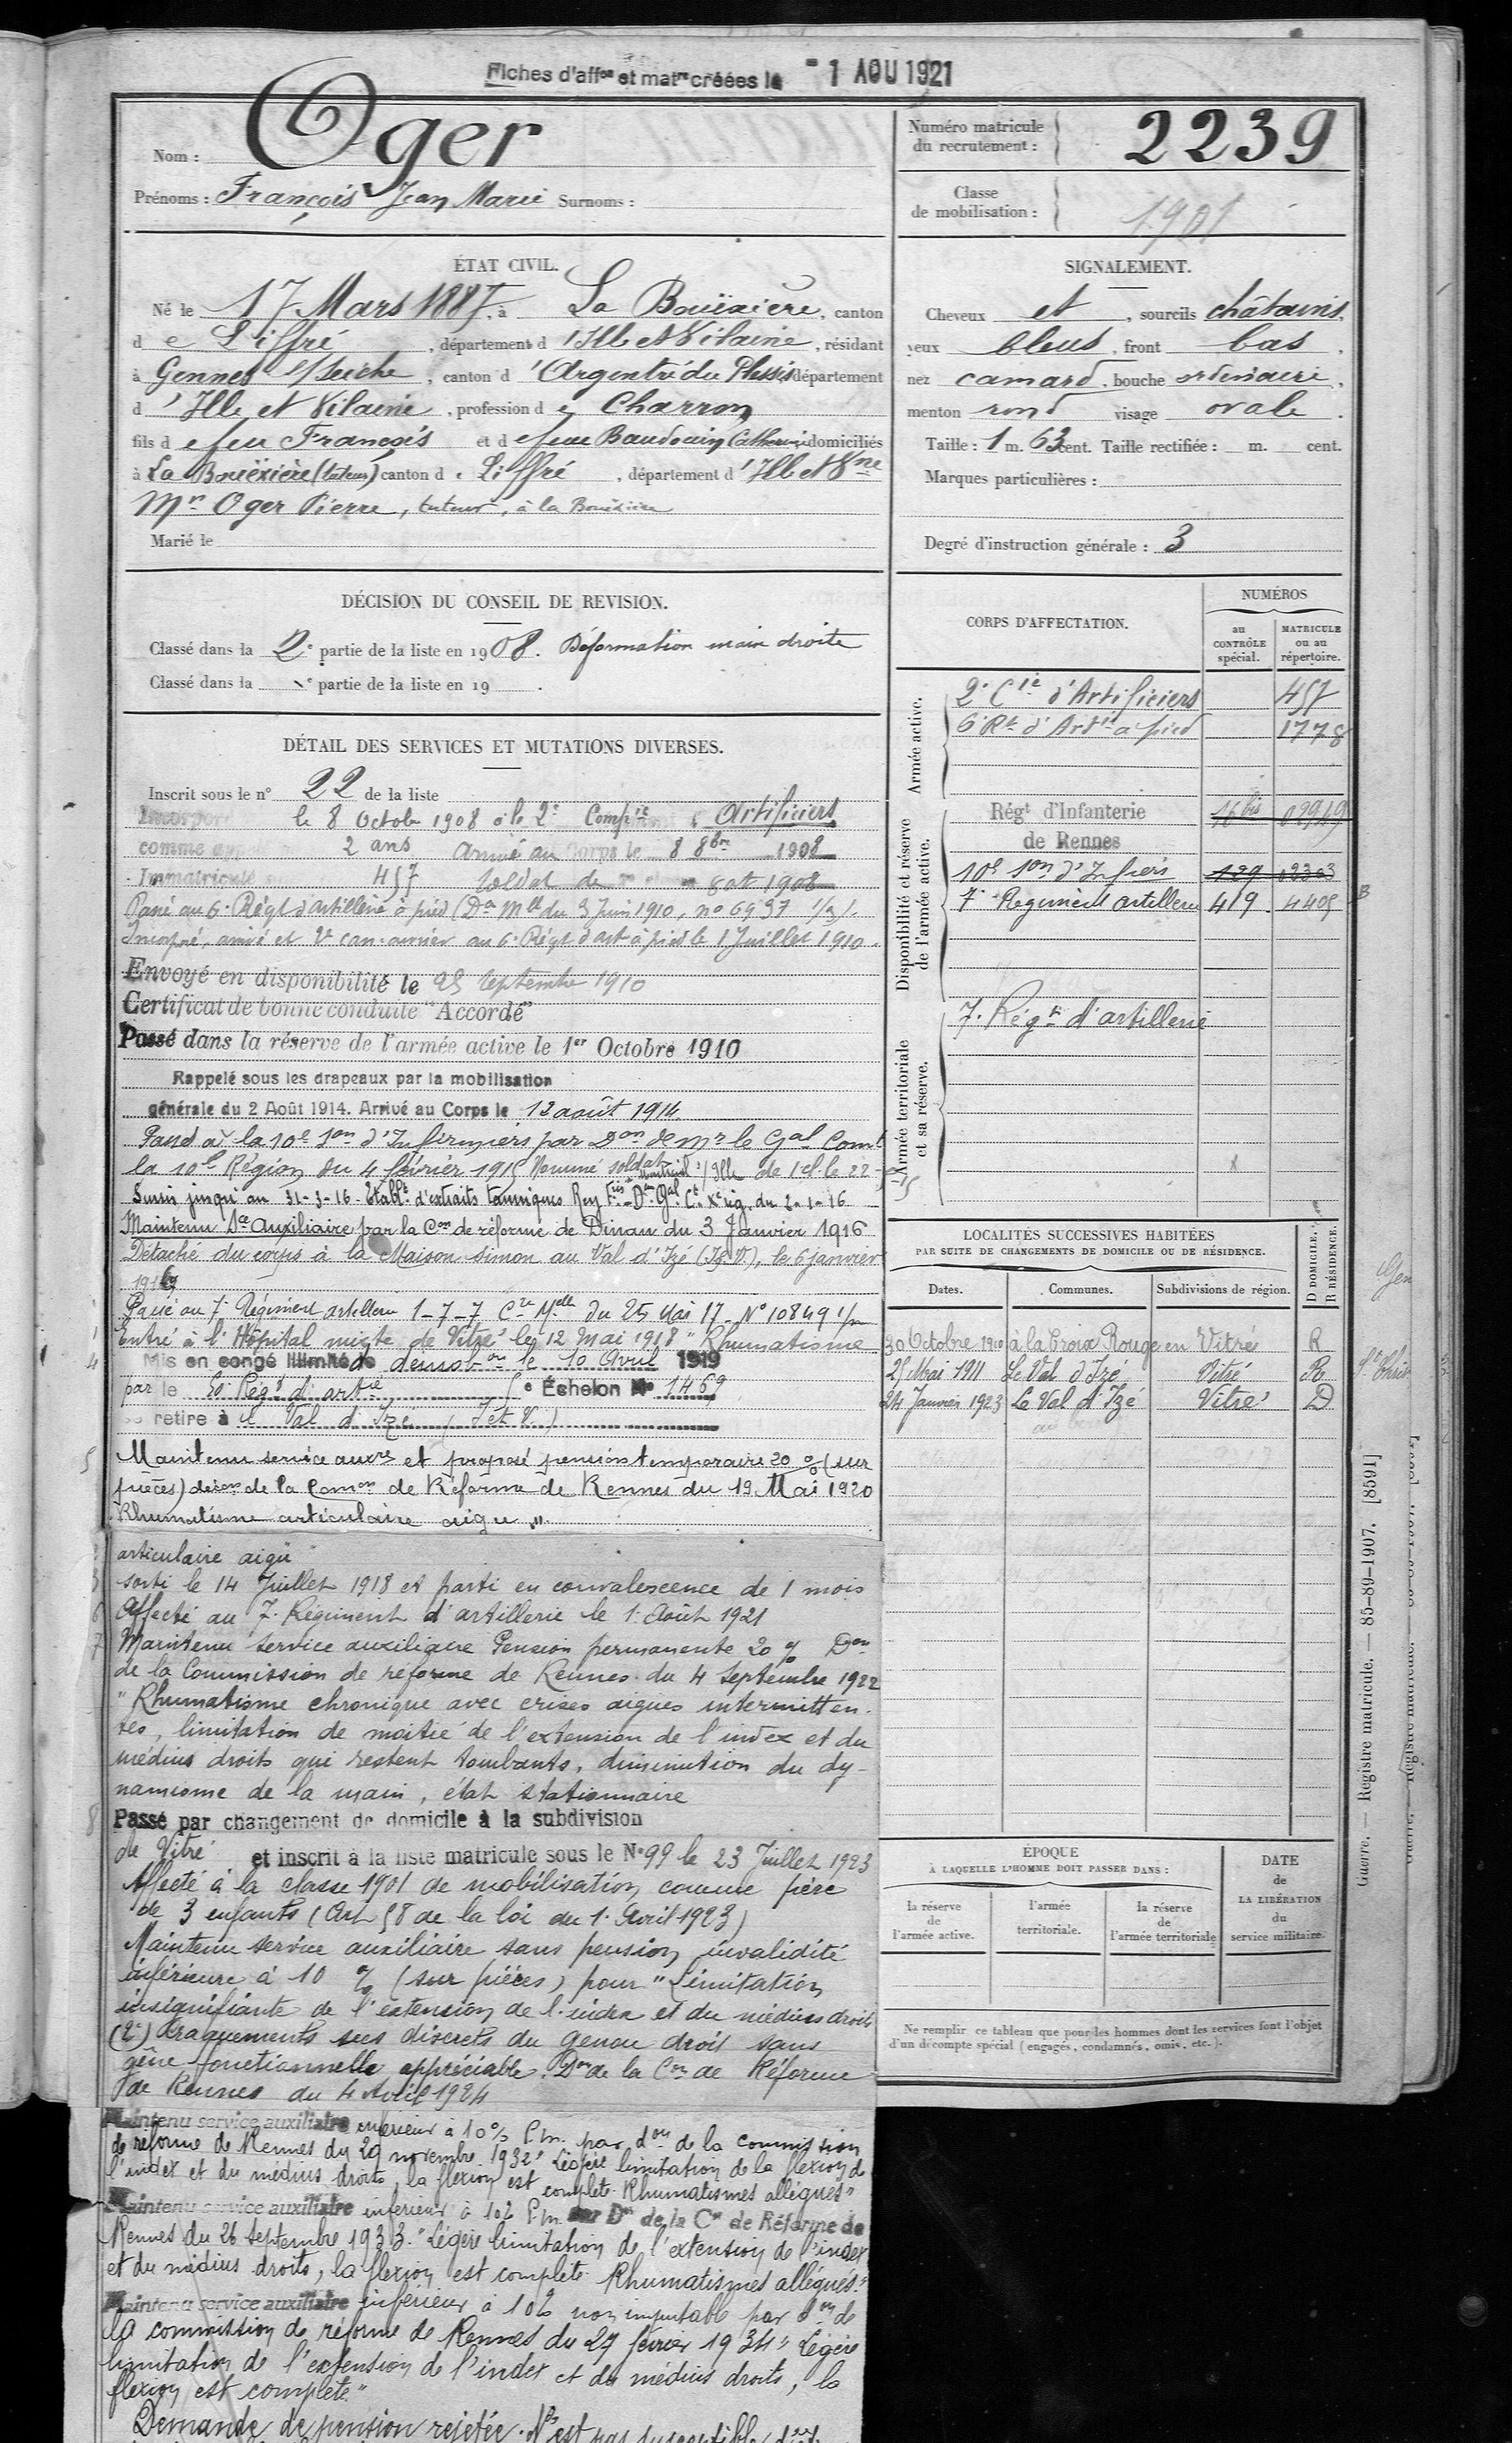 Fiches d'aff^on et mat^re créées le - 1 AOU 1921
Nom : Oger
Prénoms : François Jean Marie Surnoms :
Numéro matricule du recrutement : 2239
Classe de mobilisation : 1901
ÉTAT CIVIL.
Né le 17 Mars 1887, à La Bouëxière, canton
de Liffré, département d'Ille et Vilaine, résidant
à Gennes s/ Seiche, canton d'Argentré du Plessis département
d'Ille et Vilaine, profession de Charron
fils de feu François et de feue Baudouin Catherine domiciliés
à La Bouëxière (tuteur) canton de Liffré, département d'Ille et V^ne
M^r Oger Pierre, tuteur, à la Bouëxière
Marié le
SIGNALEMENT.
Cheveux et, sourcils châtains,
yeux bleus, front bas,
nez camard, bouche ordinaire,
menton rond visage ovale.
Taille : 1 m. 63 cent. Taille rectifiée : m. cent.
Marques particulières :
Degré d'instruction générale : 3
DÉCISION DU CONSEIL DE REVISION.
Classé dans la 2^e partie de la liste en 1908. Déformation main droite
Classé dans la ^e partie de la liste en 19 .
DÉTAIL DES SERVICES ET MUTATIONS DIVERSES.
Inscrit sous le n° 22 de la liste
Incorporé le 8 Octobre 1908 à la 2^e Comp^ie d'Artificiers
comme appelé 2 ans Arrivé au Corps le 8 8^bre 1908
Immatriculé 457 Soldat de 8 8t 1908
Passé au 6^e Régt d'artillerie à pied (D^on M^lle du 3 Juin 1910, n° 6937 1/3).
Incorporé, arrivé et 2^e can. ouvrier au 6^e Régt d'art à pied le 1 Juillet 1910.
Envoyé en disponibilité le 25 Septembre 1910
Certificat de bonne conduite "Accordé"
Passé dans la réserve de l'armée active le 1^er Octobre 1910
Rappelé sous les drapeaux par la mobilisation
générale du 2 Août 1914. Arrivé au Corps le 12 août 1914
Passé à la 10^e S^on d'Infirmiers par D^on de M^r le G^al Com^t
la 10^e Région du 4 février 1915 Nommé soldat de 1 cl. le 22-
Sursis jusqu'au 31-3-16. Etabl^t d'extraits tanniques Rey F^res Montreuil s/Ille D^on G^al C^t X^e rég. du 2-1-16
Maintenu S^ce Auxiliaire par la C^on de réforme de Dinan du 3 Janvier 1916
Détaché du corps à la Maison Simon au Val d'Izé (I.&.V.), le 6 janvier
1916
Passé au 7^e Régiment artillerie 1-7-7 C^re M^elle du 25 Mai 17. N° 10849 1/
Entré à l'Hôpital mixte de Vitré le 12 Mai 1918 "Rhumatisme
Mis en congé illimité de démob^on le 10 Avril 1919
par le 50 Rég^t d'art^ie ^e Échelon N° 1469
se retire à Le Val d'Izé (I et V.)
Maintenu service aux^re et proposé pension temporaire 20 % (sur
pièces) décis^on de la Com^on de Réforme de Rennes du 19 Mai 1920
Rhumatisme articulaire aigu".
articulaire aigü"
sorti le 14 Juillet 1918 et parti en convalescence de 1 mois
Affecté au 7^e Régiment d'artillerie le 1^e Août 1921
Maintenu service auxiliaire Pension permanente 20 % D^on
de la Commission de réforme de Rennes du 4 Septembre 1922
"Rhumatisme chronique avec crises aigues intermitten-
tes, limitation de moitié de l'extension de l'index et du
médius droits qui restent tombants, diminution du dy-
namisme de la main, état stationnaire
Passé par changement de domicile à la subdivision
de Vitré et inscrit à la liste matricule sous le N° 99 le 23 Juillet 1923
Affecté à la classe 1901 de mobilisation comme père
de 3 enfants (Art 58 de la loi du 1^e Avril 1923)
Maintenu service auxiliaire sans pension, invalidité
inférieure à 10 % (sur pièces) pour "Limitation
insignifiante de l'extension de l'index et du médius droits
(2°) Craquements secs discrets du genou droit sans
gêne fonctionnelle appréciable. D^on de la C^on de Réforme
de Rennes du 4 Avril 1924
Maintenu service auxiliaire inférieur à 10 % P.m. par d^on de la commission
de réforme de Rennes du 29 novembre 1932 "Légère limitation de la flexion de
l'index et du médius droits, la flexion est complète. Rhumatismes allégués"
Maintenu service auxiliaire inférieur à 10% P.m. par D^on de la C^on de Réforme de
Rennes du 26 Septembre 1933. "Légère limitation de l'extension de l'index
et du médius droits, la flexion est complète. Rhumatismes allégués."
Maintenu service auxiliaire inférieur à 10% non imputable par d^on de
la commission de réforme de Rennes du 27 février 1934 "Légère
limitation de l'extension de l'index et du médius droits, la
flexion est complète"
Demande de pension rejetée. N'est pas susceptible d'
CORPS D'AFFECTATION.
NUMÉROS
au CONTRÔLE spécial.
MATRICULE ou au répertoire.
Armée active.
2^e C^ie d'Artificiers 457
6^e R^t d'Art^ie à pied 1778
Disponibilité et réserve de l'armée active.
Rég^t d'Infanterie 16 bis 02919
de Rennes
10^e S^on d'Infirs 129 02303
7^e Régiment artillerie 419 4405
Armée territoriale et sa réserve.
7^e Rég^t d'artillerie
LOCALITÉS SUCCESSIVES HABITÉES
PAR SUITE DE CHANGEMENTS DE DOMICILE OU DE RÉSIDENCE.
Dates. Communes. Subdivisions de région. D DOMICILE. R RÉSIDENCE.
30 Octobre 1910 à la Croix Rouge en Vitré R
25 Mai 1911 Le Val d'Izé Vitré R
24 Janvier 1923 Le Val d'Izé Vitré D
ÉPOQUE
À LAQUELLE L'HOMME DOIT PASSER DANS :
la réserve de l'armée active.
l'armée territoriale.
la réserve de l'armée territoriale
DATE de LA LIBÉRATION du service militaire.
Ne remplir ce tableau que pour les hommes dont les services font l'objet
d'un décompte spécial (engagés, condamnés, omis, etc.).
Guerre. — Registre matricule. — 85-89-1907. [8591]